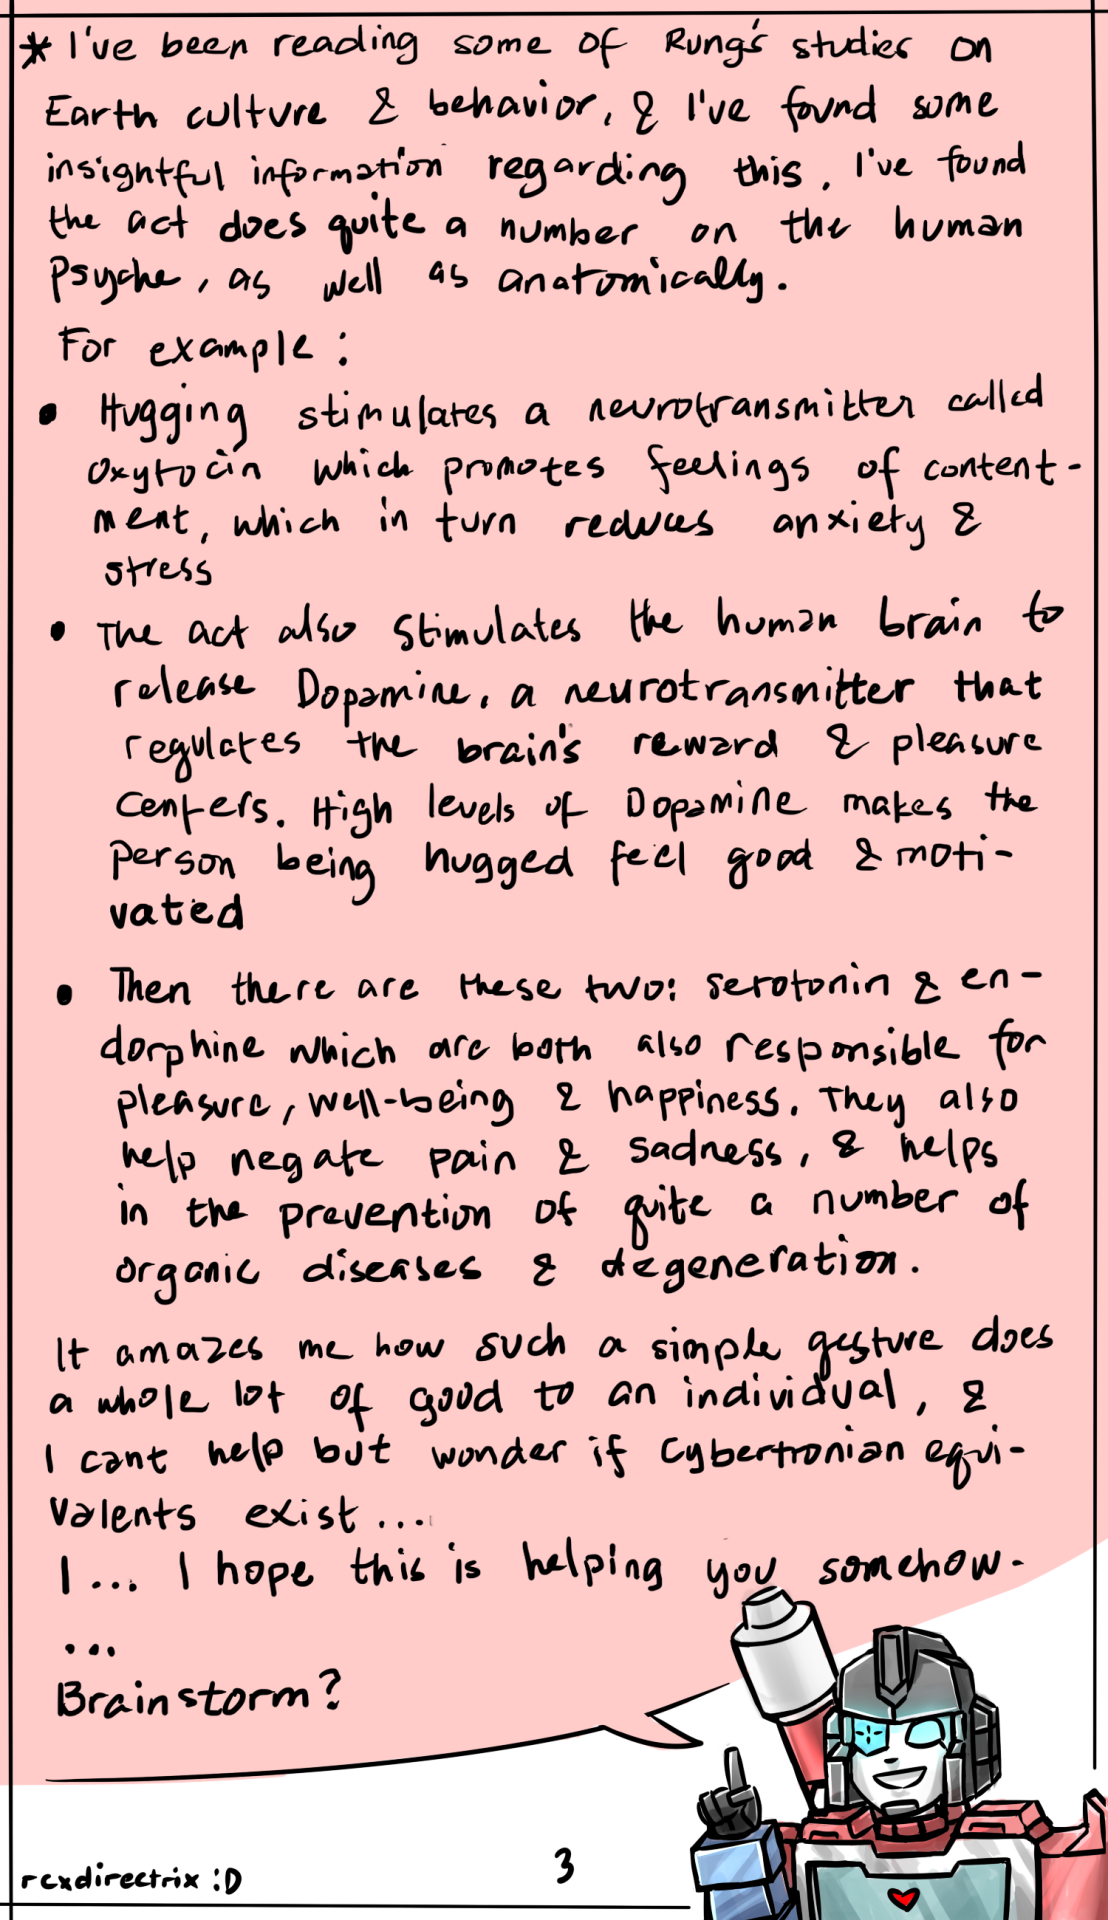 * I've been reading some of Rung's studies on
Earth culture & behavior, & I've found some
insightful information regarding this. I've found
the act does quite a number on the human
Psyche, as well as anatomically.
For example:
• Hugging stimulates a neurotransmitter called
oxytocin which promotes feelings of content-
ment, which in turn reduces anxiety &
stress
• The act also stimulates the human brain to
release Dopamine, a neurotransmitter that
regulates the brain's reward & pleasure
centers. High levels of Dopamine makes the
person being hugged feel good & moti-
vated
• Then there are these two: serotonin & en-
dorphine which are both also responsible for
pleasure, well-being & happiness. They also
help negate pain & sadness, & helps
in the prevention of quite a number of
organic diseases & degeneration.
It amazes me how such a simple gesture does
a whole lot of good to an individual, &
I cant help but wonder if Cybertronian equi-
valents exist...
I... I hope this is helping you somehow.
...
Brainstorm?
rcxdirectrix :D
3